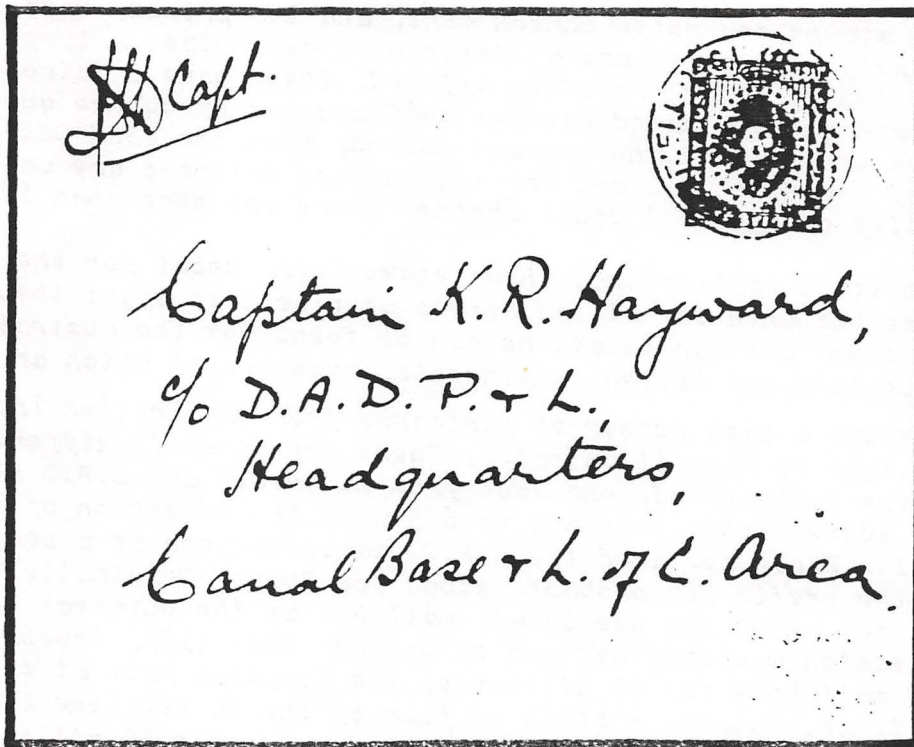 Capt.
Captain K. R. Hayward,
c/o D.A.D. P. & L.,
Headquarters,
Canal Base & L. of C. Area.